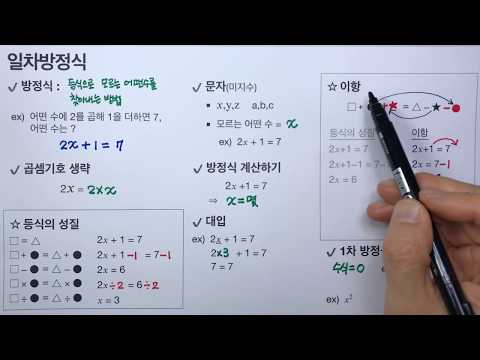 일차방정식
✓ 방정식 : 등식으로 모르는 어떤수를
찾아내는 방법
ex) 어떤 수에 2를 곱해 1을 더하면 7,
어떤 수는 ?
2x + 1 = 7
✓ 곱셈기호 생략
2x = 2×x
☆ 등식의 성질
□ = △
□ + ● = △ + ●
□ − ● = △ − ●
□ × ● = △ × ●
□ ÷ ● = △ ÷ ●
2x + 1 = 7
2x + 1 −1 = 7 −1
2x = 6
2x ÷2 = 6 ÷2
x = 3
✓ 문자(미지수)
▪ x,y,z a,b,c
▪ 모르는 어떤 수 = x
ex) 2x + 1 = 7
✓ 방정식 계산하기
2x + 1 = 7
⇒ x = 몇
✓ 대입
ex) 2x + 1 = 7
2×3 + 1 = 7
7 = 7
☆ 이항
□ + ★ = △ − ★ − ●
등식의 성질
2x+1 = 7
2x+1−1 = 7−
2x = 6
이항
2x + 1 = 7
2x = 7 −1
✓ 1차 방정
수식=0
ex) x²